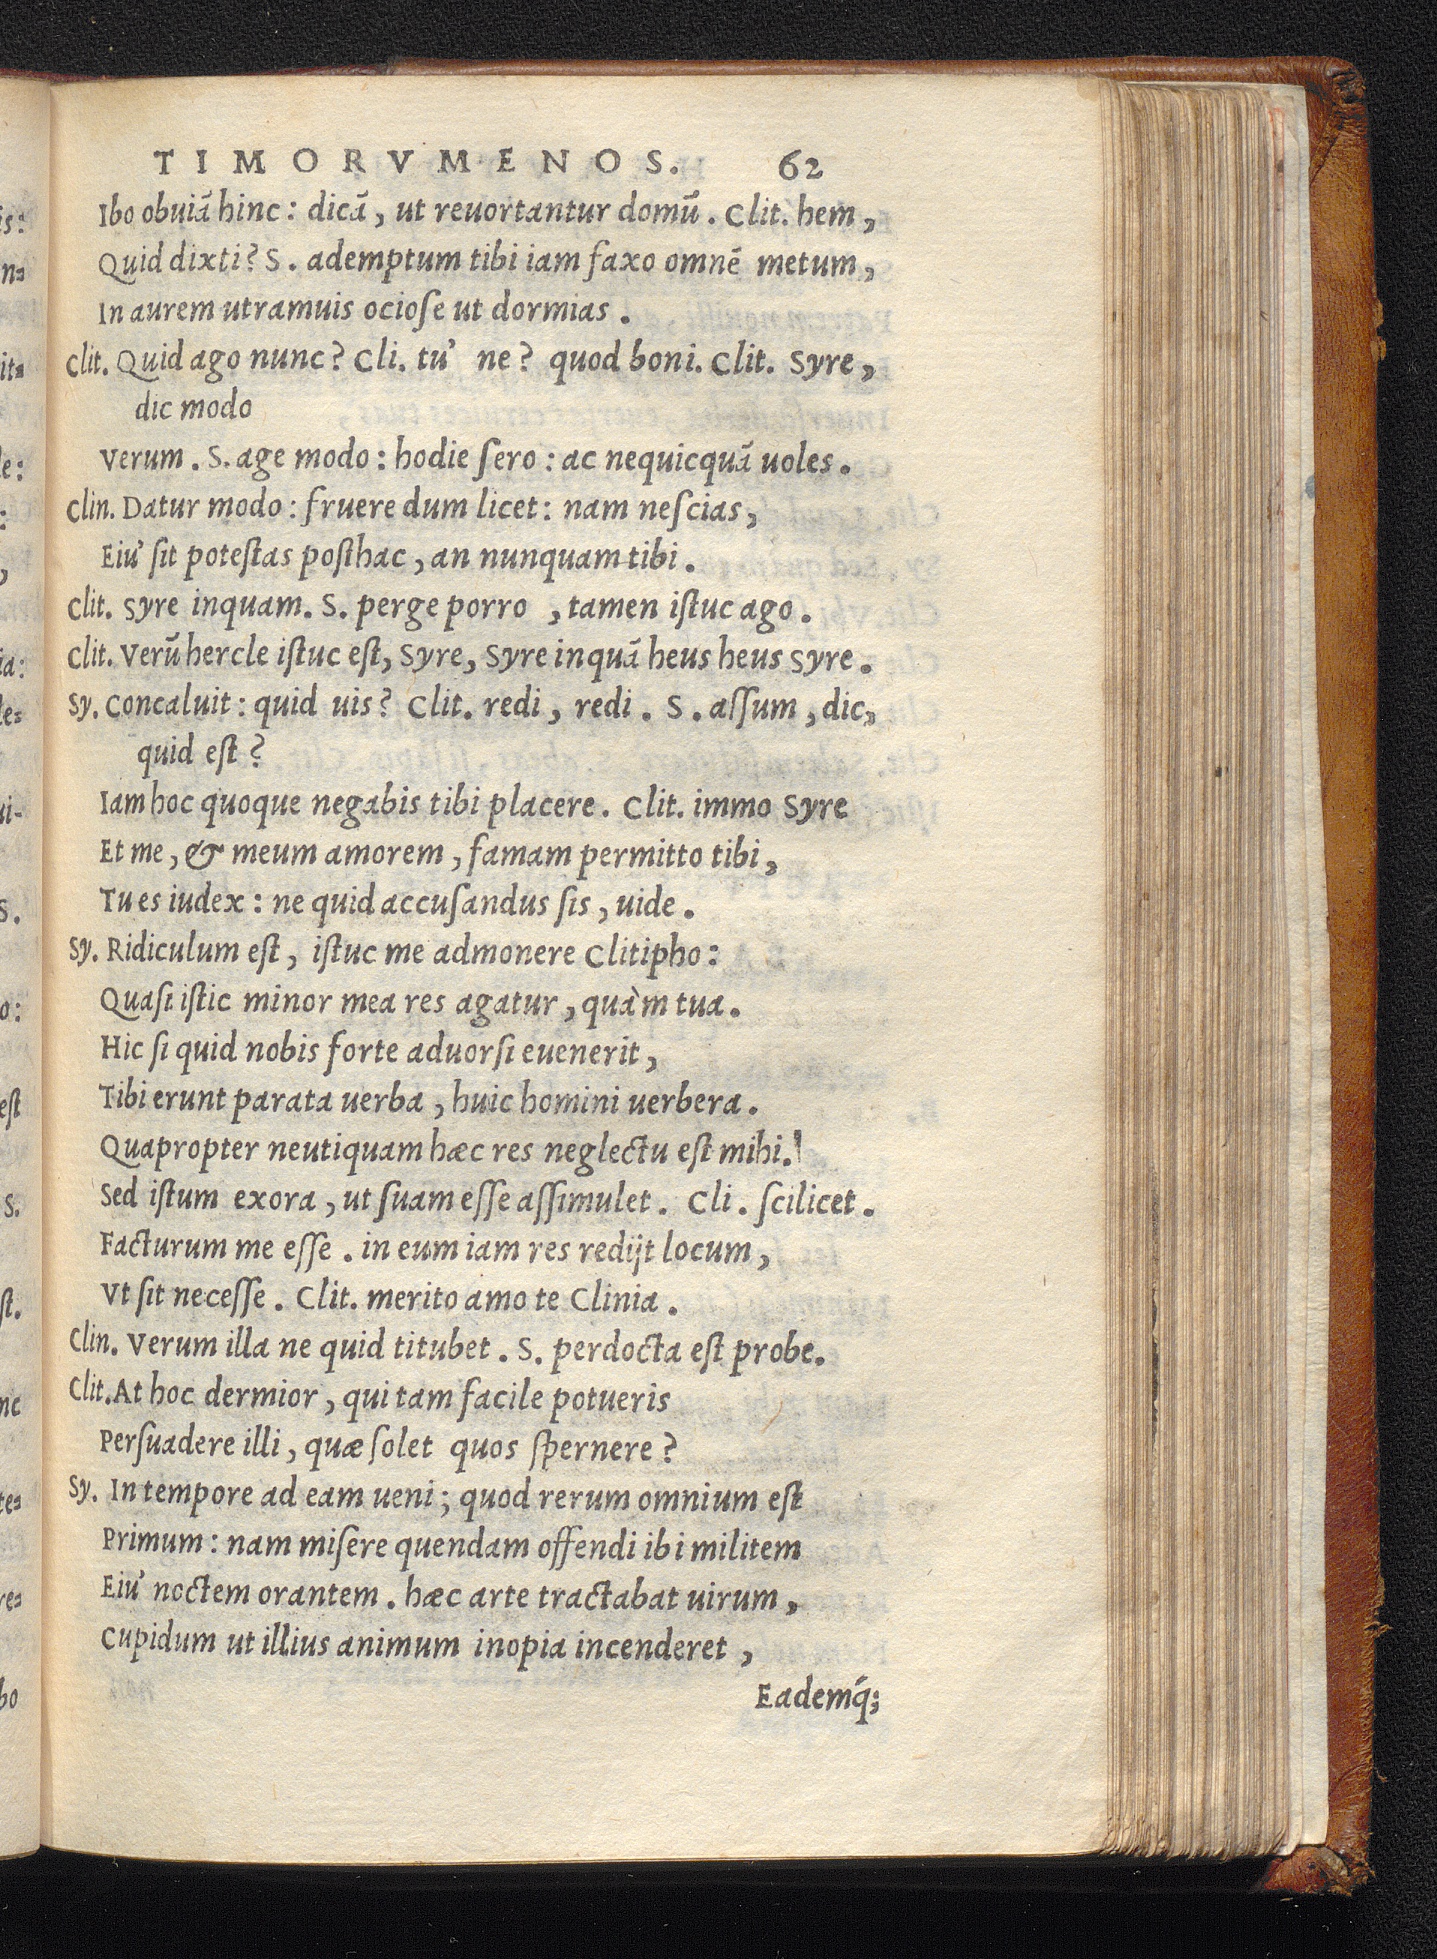 TIMORVMENOS. 62
Ibo obuiā hinc: dicā, ut reuortantur domū. Clit. hem,
Quid dixti? S. ademptum tibi iam faxo omnē metum,
In aurem utramuis ocioſe ut dormias.
Clit. Quid ago nunc? Cli. tu' ne? quod boni. Clit. Syre,
dic modo
Verum. S. age modo: hodie ſero: ac nequicquā uoles.
Clin. Datur modo: fruere dum licet: nam neſcias,
Eiu' ſit poteſtas poſthac, an nunquam tibi.
Clit. Syre inquam. S. perge porro, tamen iſtuc ago.
Clit. Verū hercle iſtuc eſt, Syre, Syre inquā heus heus Syre.
Sy. Concaluit: quid uis? Clit. redi, redi. S. aſſum, dic,
quid eſt?
Iam hoc quoque negabis tibi placere. Clit. immo Syre
Et me, & meum amorem, famam permitto tibi,
Tu es iudex: ne quid accuſandus ſis, uide.
Sy. Ridiculum eſt, iſtuc me admonere Clitipho:
Quaſi iſtic minor mea res agatur, quàm tua.
Hic ſi quid nobis forte aduorſi euenerit,
Tibi erunt parata uerba, huic homini uerbera.
Quapropter neutiquam hæc res neglectu eſt mihi.
Sed iſtum exora, ut ſuam eſſe aſſimulet. Cli. ſcilicet.
Facturum me eſſe. in eum iam res redijt locum,
Vt ſit neceſſe. Clit. merito amo te Clinia.
Clin. Verum illa ne quid titubet. S. perdocta eſt probe.
Clit. At hoc dermior, qui tam facile potueris
Perſuadere illi, quæ ſolet quos ſpernere?
Sy. In tempore ad eam ueni; quod rerum omnium eſt
Primum: nam miſere quendam offendi ibi militem
Eiu' noctem orantem. hæc arte tractabat uirum,
Cupidum ut illius animum inopia incenderet,
Eademq́;